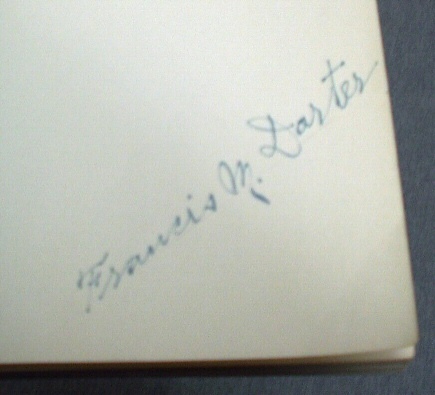 Francis M. Darter